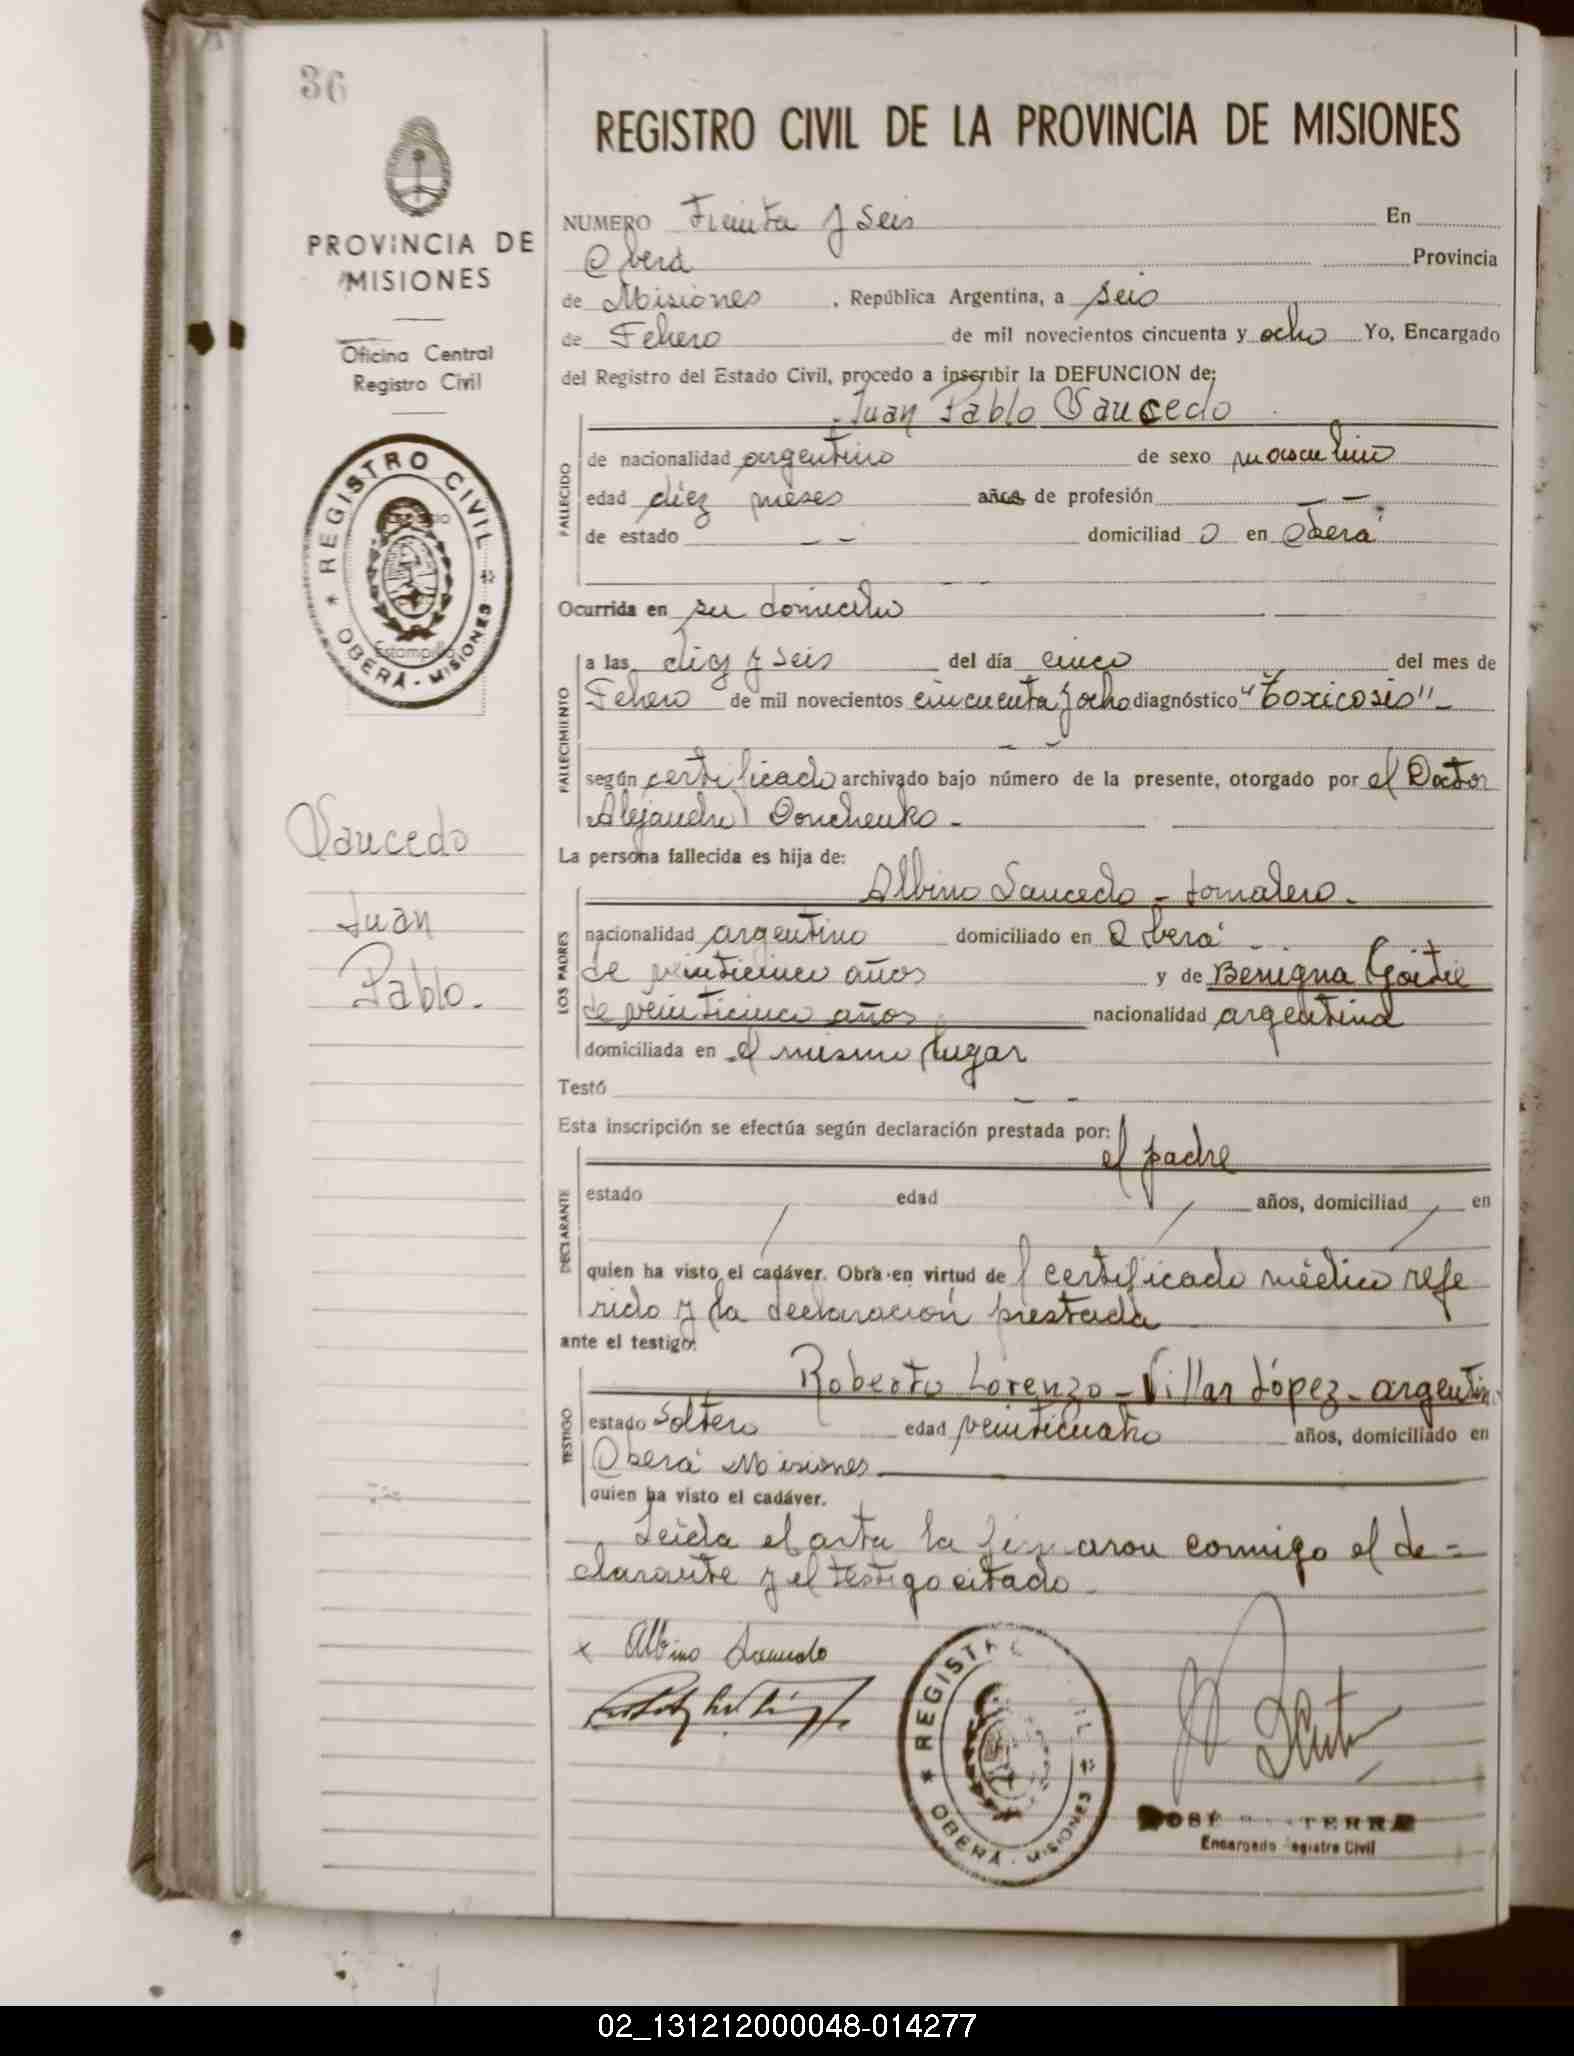 36
PROVINCIA DE
MISIONES
Oficina Central
Registro Civil
* REGISTRO CIVIL *
OBERÁ - MISIONES
Estampilla
Saucedo
Juan
Pablo.
REGISTRO CIVIL DE LA PROVINCIA DE MISIONES
NUMERO Treinta y Seis En
Oberá Provincia
de Misiones , República Argentina, a seis
de Febrero de mil novecientos cincuenta y ocho Yo, Encargado
del Registro del Estado Civil, procedo a inscribir la DEFUNCION de:
Juan Pablo Saucedo
FALLECIDO
de nacionalidad argentino de sexo masculino
edad diez meses años de profesión — —
de estado — — domiciliado en Oberá
— —
Ocurrida en su domicilio
FALLECIMIENTO
a las diez y seis del día cinco del mes de
Febrero de mil novecientos cincuenta y ocho diagnóstico "Toxicosis" —
— —
según certificado archivado bajo número de la presente, otorgado por el Doctor
Alejandro Donchenko -
La persona fallecida es hija de:
LOS PADRES
Albino Saucedo - Jornalero.
nacionalidad argentino domiciliado en Oberá
de veinticinco años y de Benigna
de veinticinco años nacionalidad argentina
domiciliada en el mismo lugar
Testó — —
Esta inscripción se efectúa según declaración prestada por:
el padre
DECLARANTE
estado edad años, domiciliad en
quien ha visto el cadáver. Obra en virtud del certificado médico refe
rido y la declaración prestada
ante el testigo:
TESTIGO
Roberto Lorenzo - Villar López - argentin
estado Soltero edad veinticuatro años, domiciliado en
Oberá Misiones
quien ha visto el cadáver.
Leída el acta la firmaron conmigo el de-
clarante y el testigo citado -
x Albino Saucedo
* REGISTR IL *
OBERÁ - MISIONES
JOSÉ TERRA
Encargado Registro Civil
02_131212000048-014277